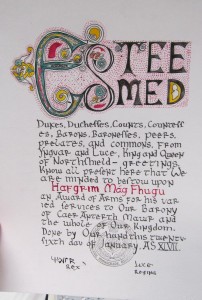 ESTEE
MED
Dukes, Duchesses, Counts, Countess
es, Barons, Baronesses, peers,
prelates, and commons, from
Yngvar and Luce, King and Queen
of Northshield- greetings.
Know all present here that We
are minded to bestow upon
Hargrim Mag Fhugu
an Award of Arms for his var
ied services to Our Barony
of Caer Anterth Mawr and
the whole of Our Kingdom.
Done by Our hand this twenty-
sixth day of January, AS XLVII.
REX
LUCE
REGINA